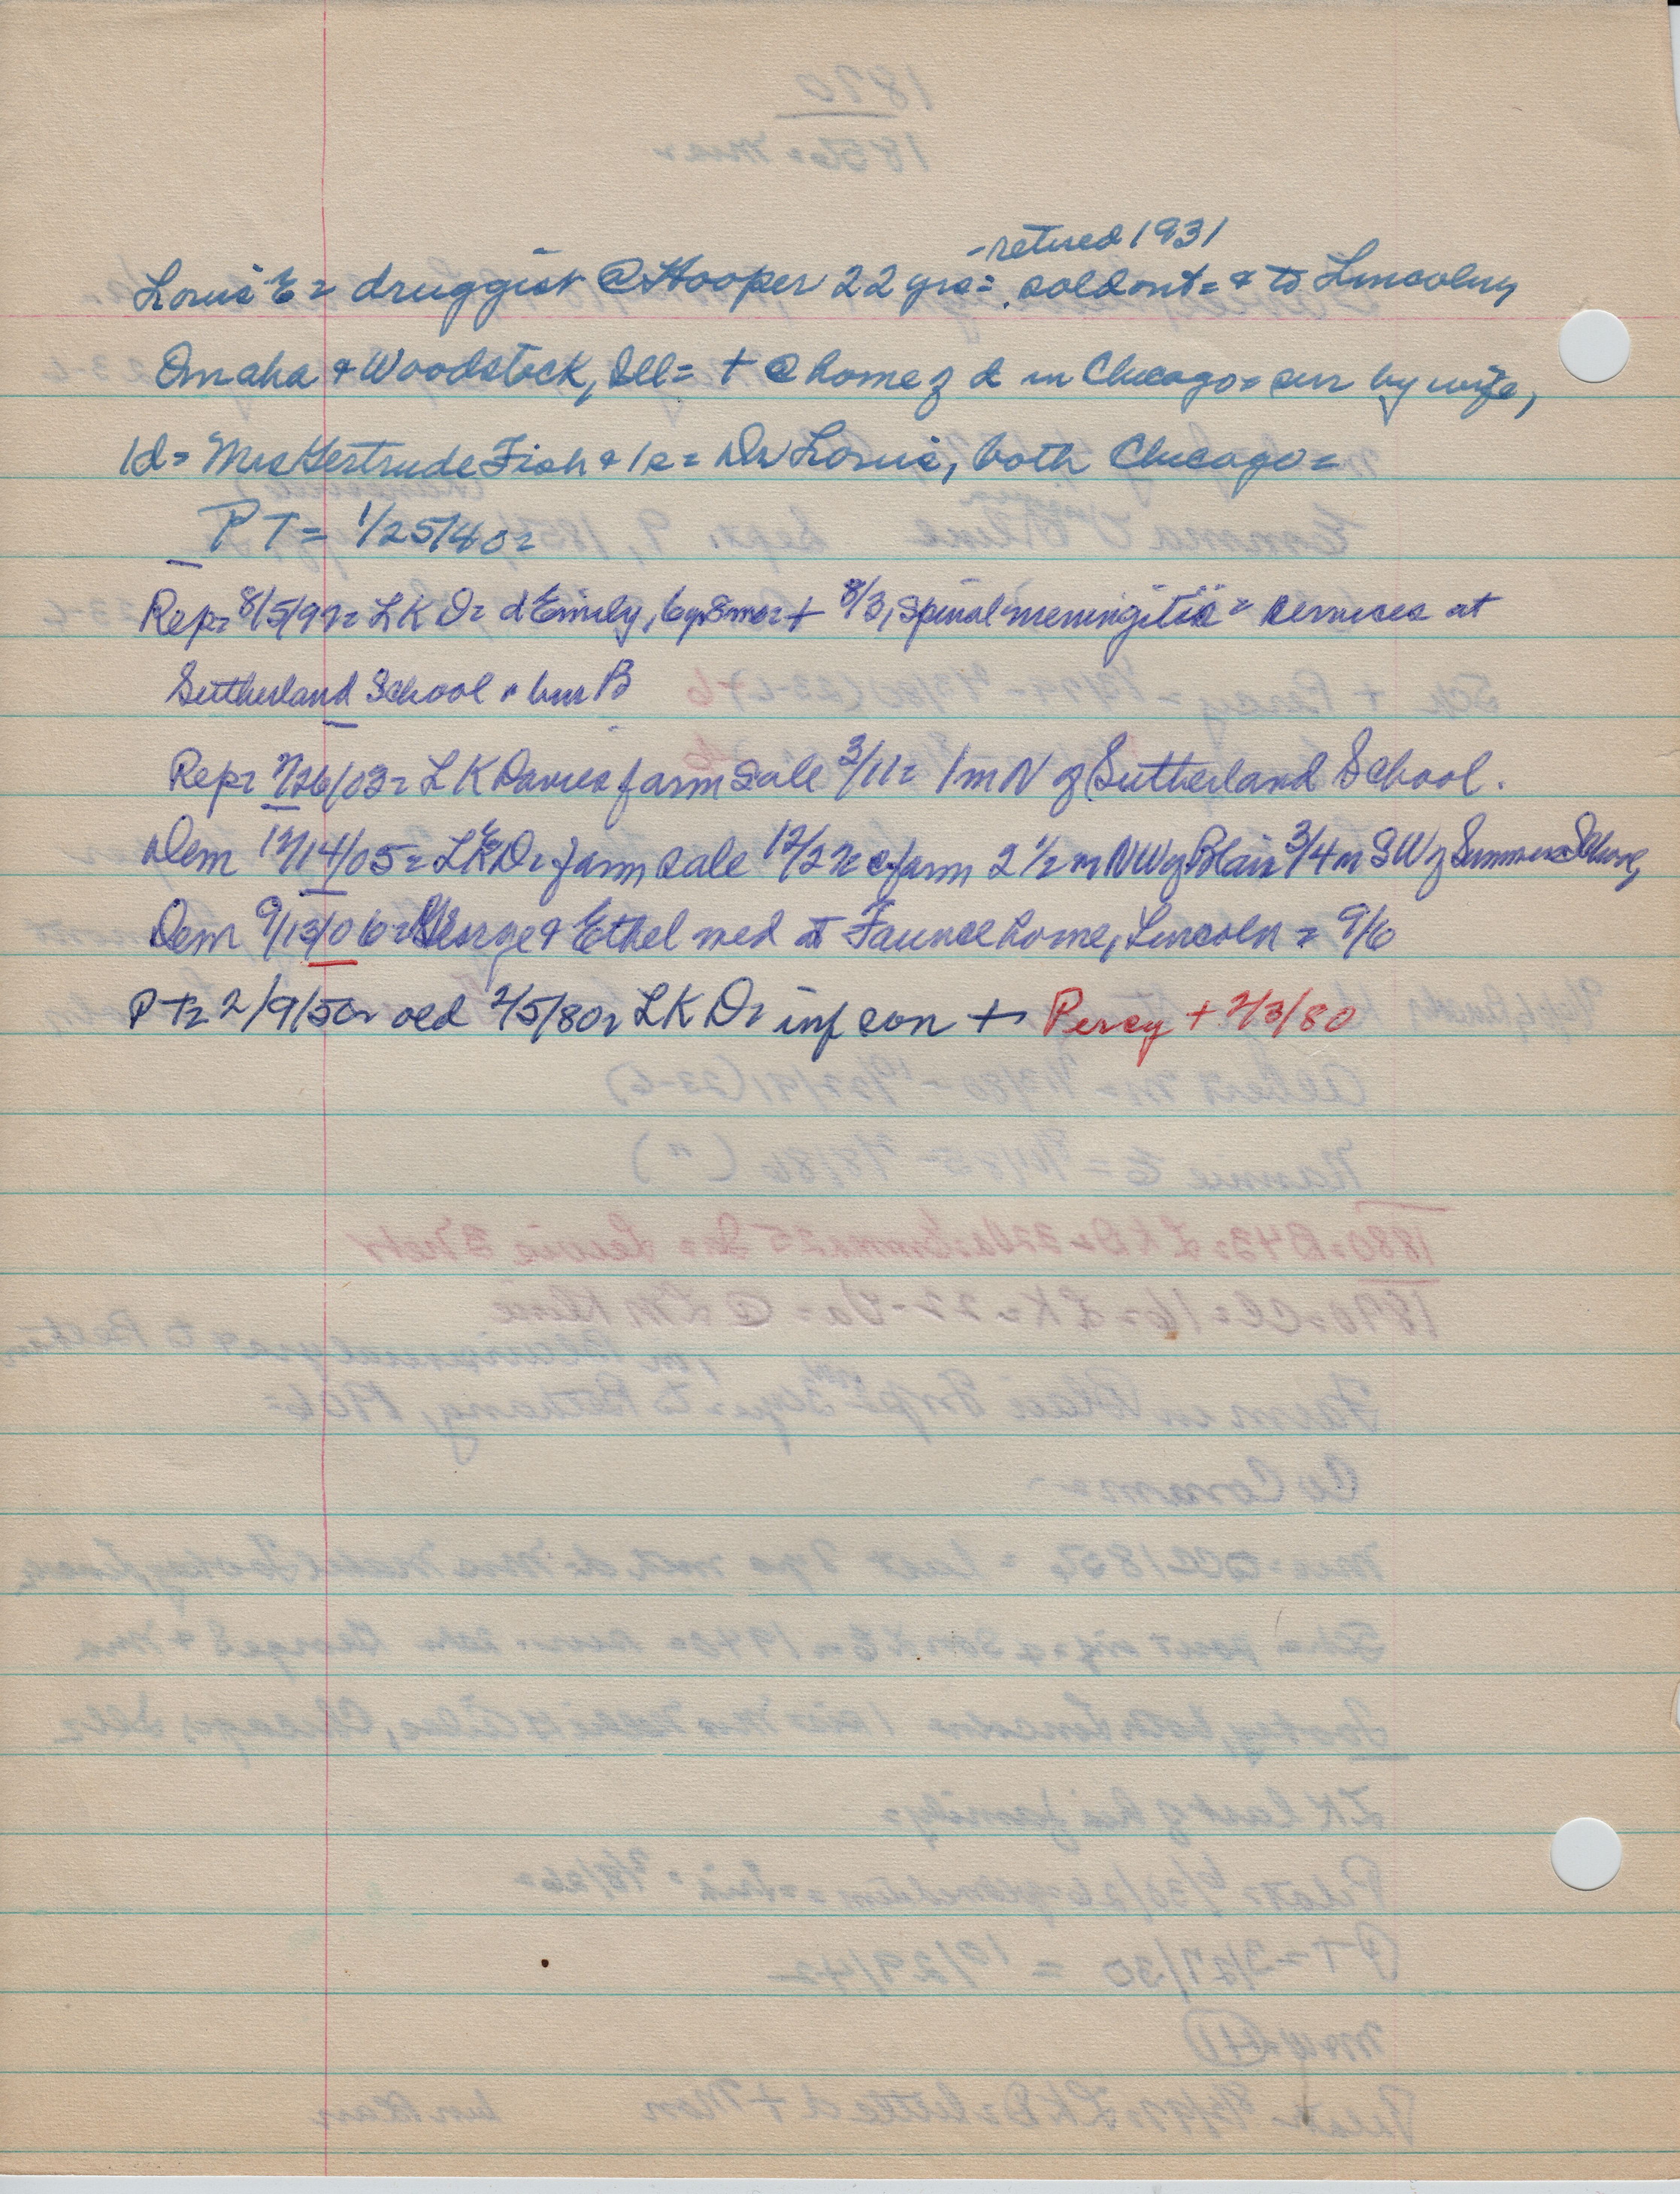 -retired 1931
Louis E = druggist @ Hooper 22 yrs = sold out = & to Lincoln,
Omaha & Woodstock, Ill = + @ home of d in Chicago = sur by wife,
1d = Mrs Gertrude Fish & 1s = Dr Louis, both Chicago =
PT = 1/25/40 =
Rep = 8/5/97 = LK D = d Emily, 6y 8mo = + 8/3, spinal meningitis = services at
Sutherland School & bur B
Rep = 2/26/03 = LK Davies farm sale 3/11 = 1 m N of Sutherland School.
Dem 12/14/05 = LKD = farm sale 12/21 = @ farm 2 1/2 m NW of Blair 3/4 m SW of Summers School,
Dem 9/13/06 = George & Ethel wed at Faunce home, Lincoln = 9/6
PT = 2/9/50 = old 2/5/80 = LK D = inf son + Percy + 2/3/80